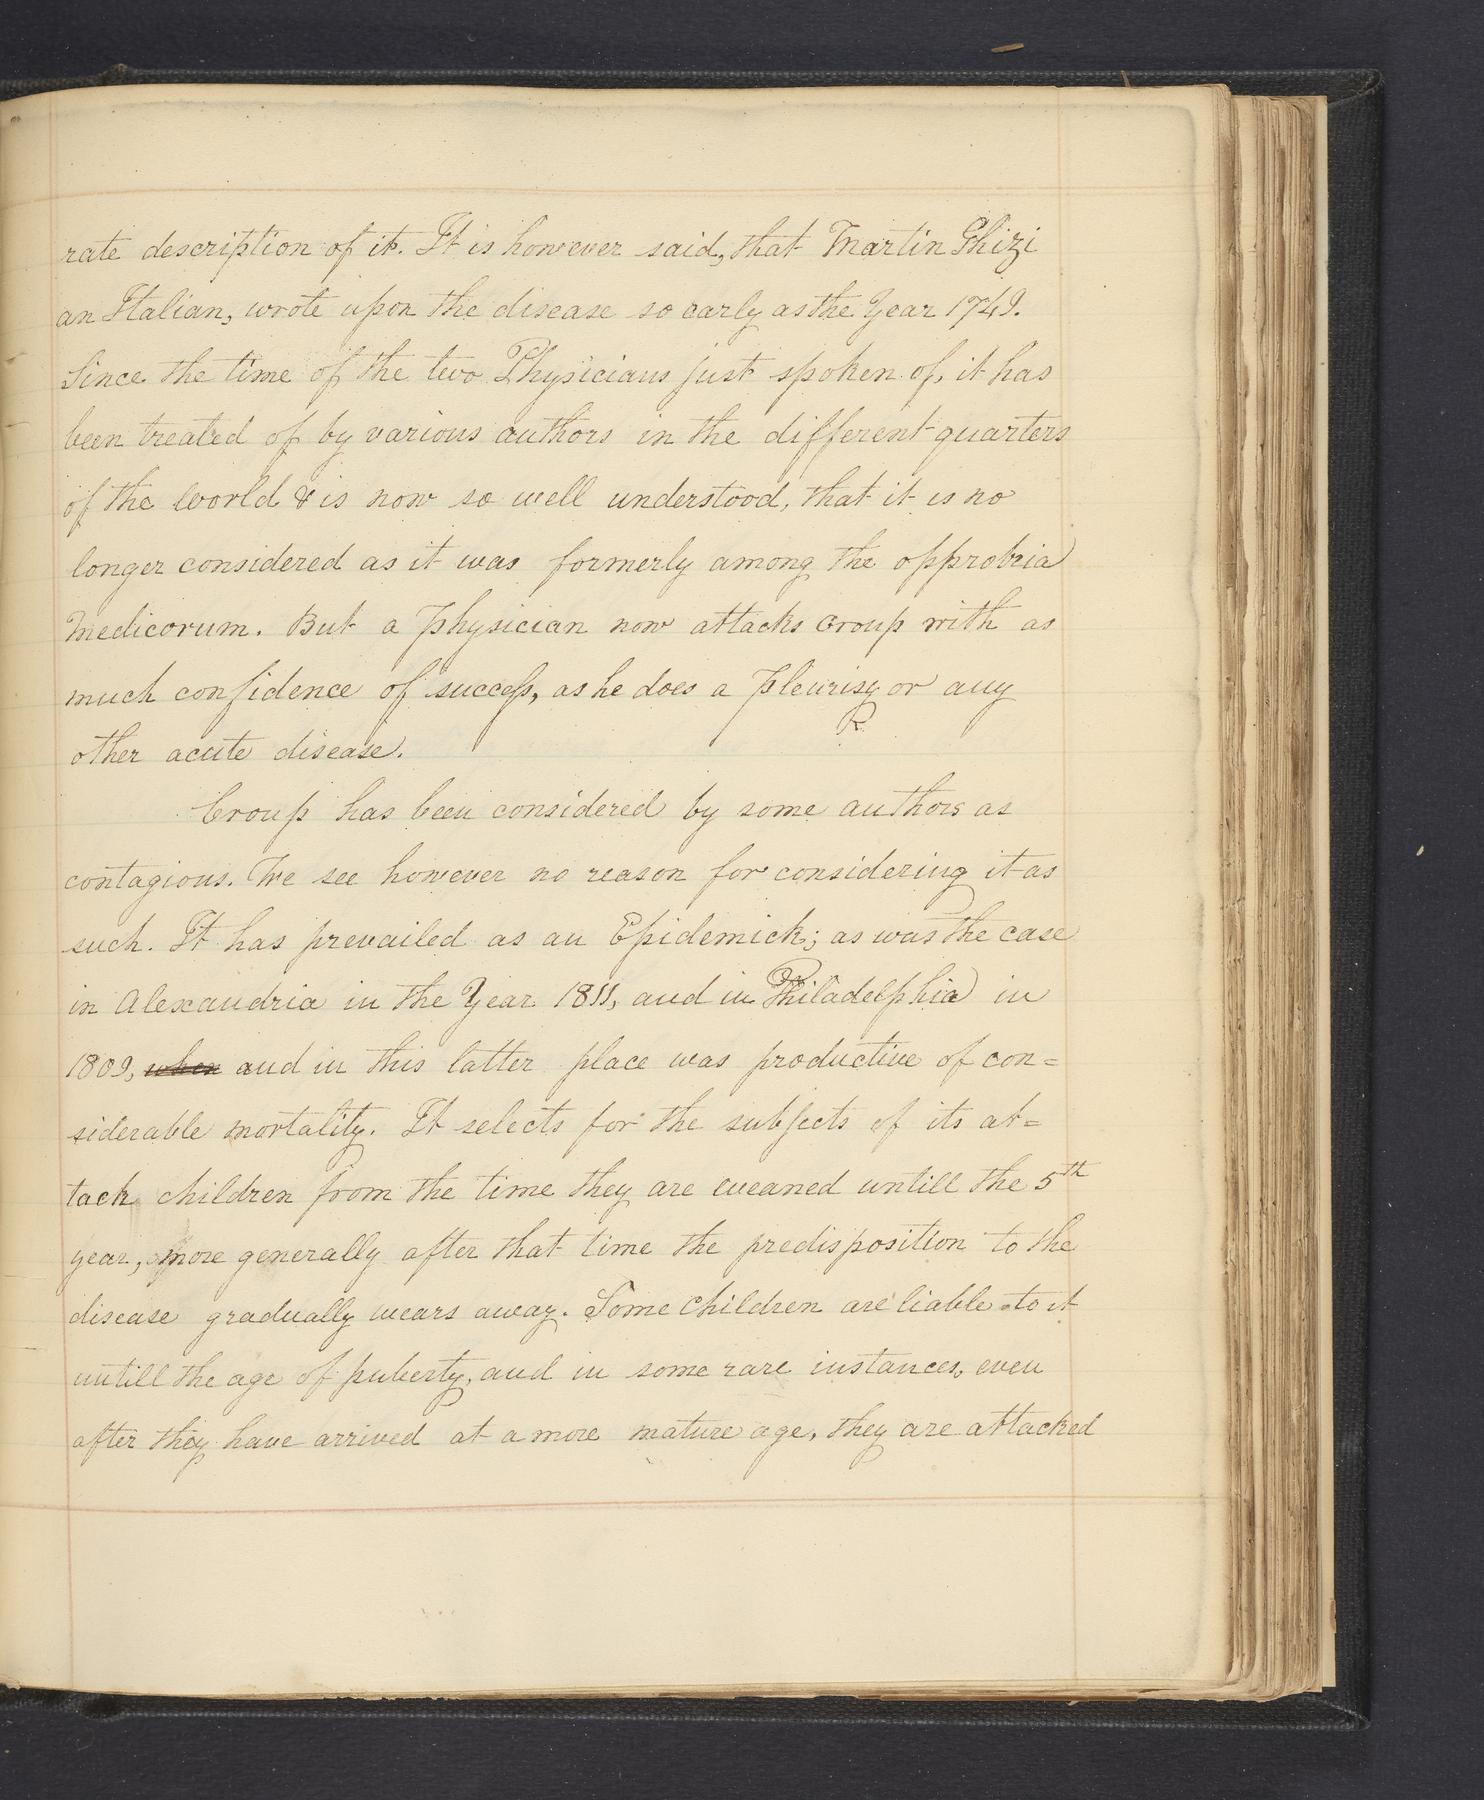 rate description of it. It is however said, that Martin Ghizi
an Italian, wrote upon the disease so early as the Year 1749.
Since the time of the two Physicians just spoken of, it has
been treated of by various authors in the different quarters
of the World & is now so well understood, that it is no
longer considered as it was formerly among the opprobria
Medicorum. But a physician now attacks Croup with as
much confidence of success, as he does a pleurisy or any
other acute disease.
Croup has been considered by some authors as
contagious. We see however no reason for considering it as
such. It has prevailed as an Epidemick; as was the case
in Alexandria in the Year 1811, and in Philadelphia in
1809, when and in this latter place was productive of con=
siderable mortality. It selects for the subjects of its at=
tack children from the time they are weaned untill the 5th
year, more generally after that time the predisposition to the
disease gradually wears away. Some Children are liable to it
untill the age of puberty, and in some rare instances, even
after they have arrived at a more mature age, they are attacked